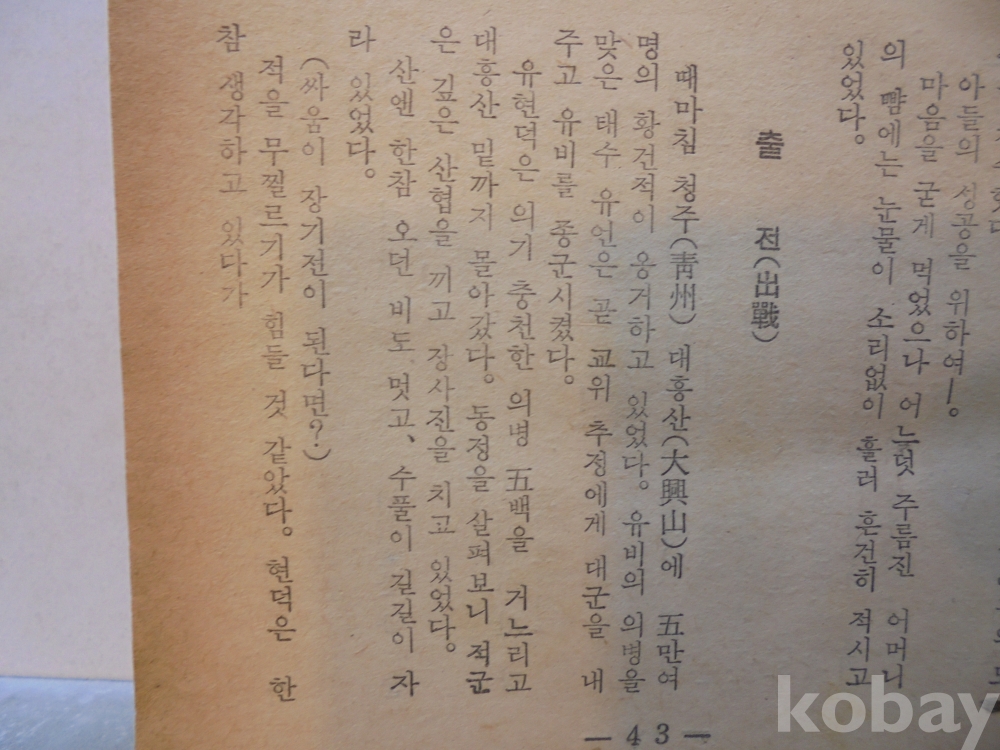 아들의 성공을 위하여—。
마음을 굳게 먹었으나 어느덧 주름진 어머니
의 뺨에는 눈물이 소리없이 흘러 흔건히 적시고
있었다。
출 전(出戰)
때마침 청주(青州) 대흥산(大興山)에 五만여
명의 황건적이 웅거하고 있었다。 유비의 의병을
맞은 태수 유언은 곧 교위 추정에게 대군을 내
주고 유비를 종군시켰다。
유현덕은 의기 충천한 의병 五백을 거느리고
대흥산 밑까지 몰아갔다。 동정을 살펴보니 적군
은 깊은 산협을 끼고 장사진을 치고 있었다。
산엔 한참 오던 비도 멋고、 수풀이 길길이 자
라 있었다。
(싸움이 장기전이 된다면?)
적을 무찔르기가 힘들 것 같았다。 현덕은 한
참 생각하고 있다가
— 43 —
kobay